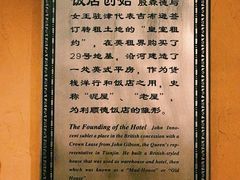 饭店创始 殷森德与
女王驻津代表吉布逊签
订转租土地的“皇室租
约”，在英租界购买了
29号地基，沿河建造了
一处英式平房，作为货
栈洋行和饭店之用，史
称“泥屋”、“老屋”
为利顺德饭店的雏形。
The Founding of the Hotel John Inno-
cent cables a place in the British concession with a
Crown Lease from John Gibson, the Queen's rep-
resentative in Tianjin. He built a British-styled
house that was used as warehouse and hotel, then
which was known as a "Mud House" or "Old
House"